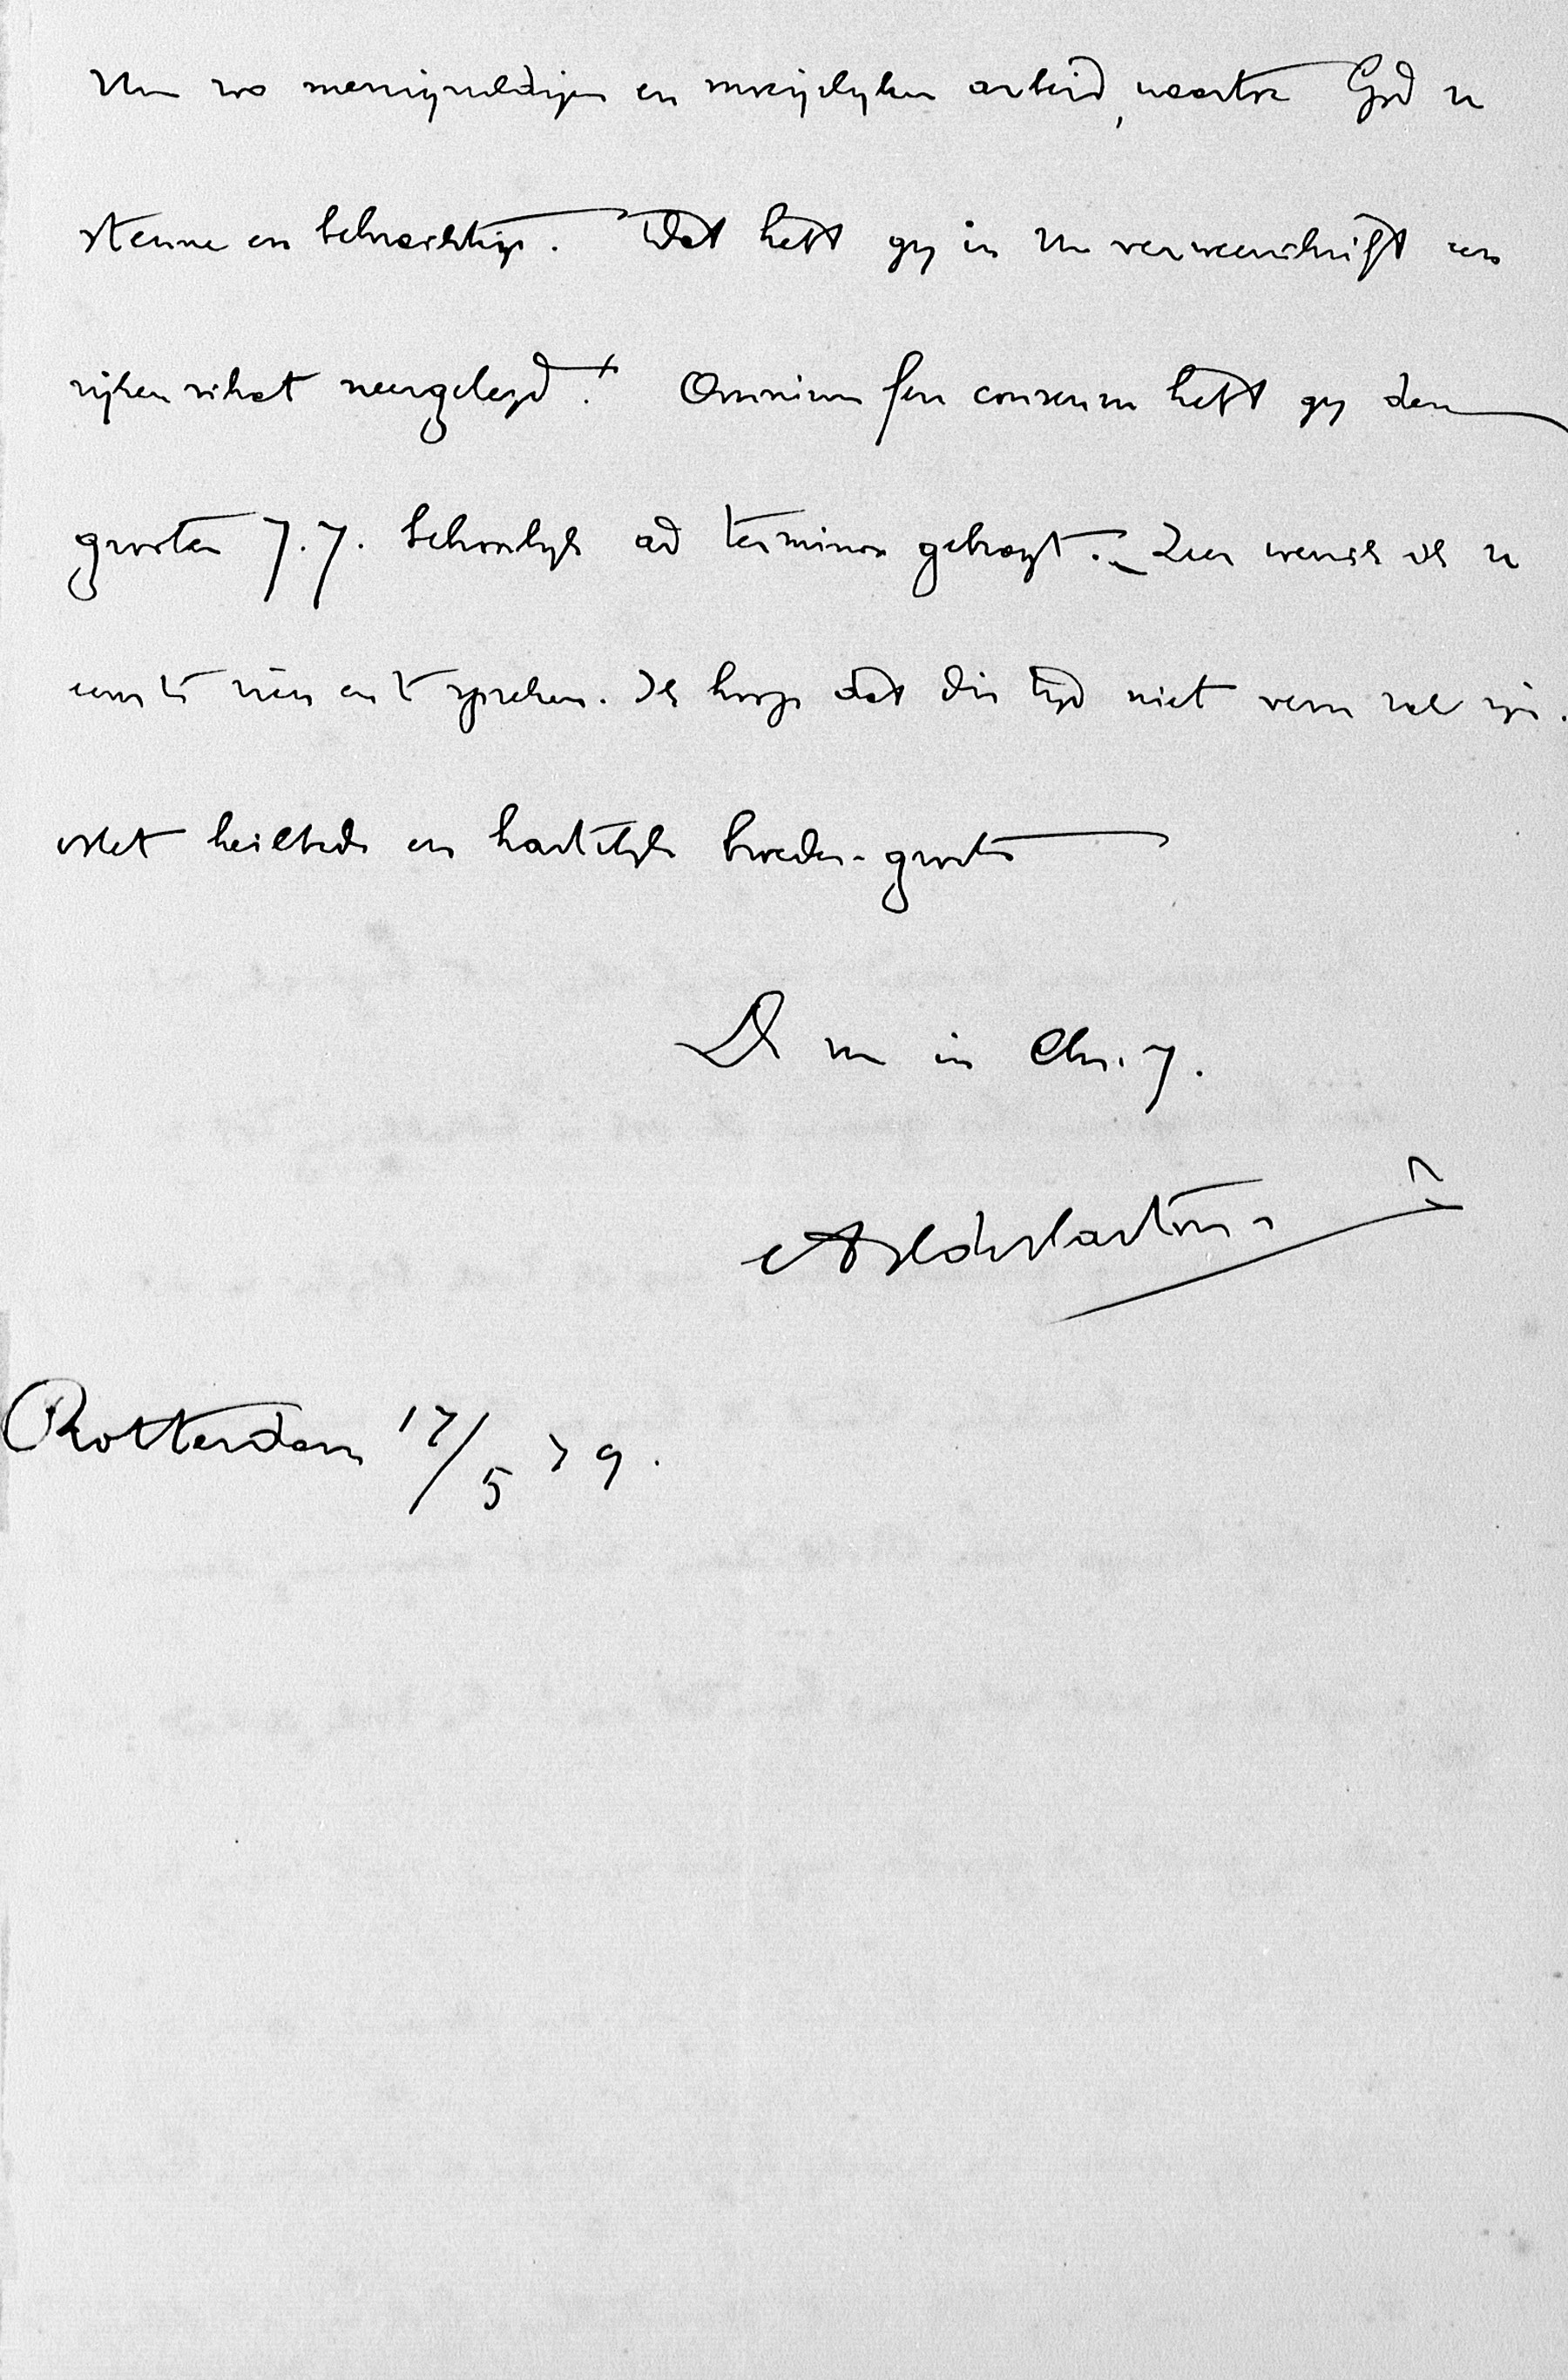 Uw zoo menigvuldigen en moeijelyken arbeid, waartoe God u
steune en bekrachtige. Wat hebt gy in Uw verweerschrift een
rijken schat neergelegd! Omnium fere consensu hebt gy den
grooten J.J. behoorlyk ad terminos gebragt. Zeer wensch ik u
eens te zien en te spreken. Ik hoop dat die tyd niet verre zal zyn.
Met heilbede en hartelyke broeder-groete
Uw in Chr. J.
Rotterdam 17/5 79.